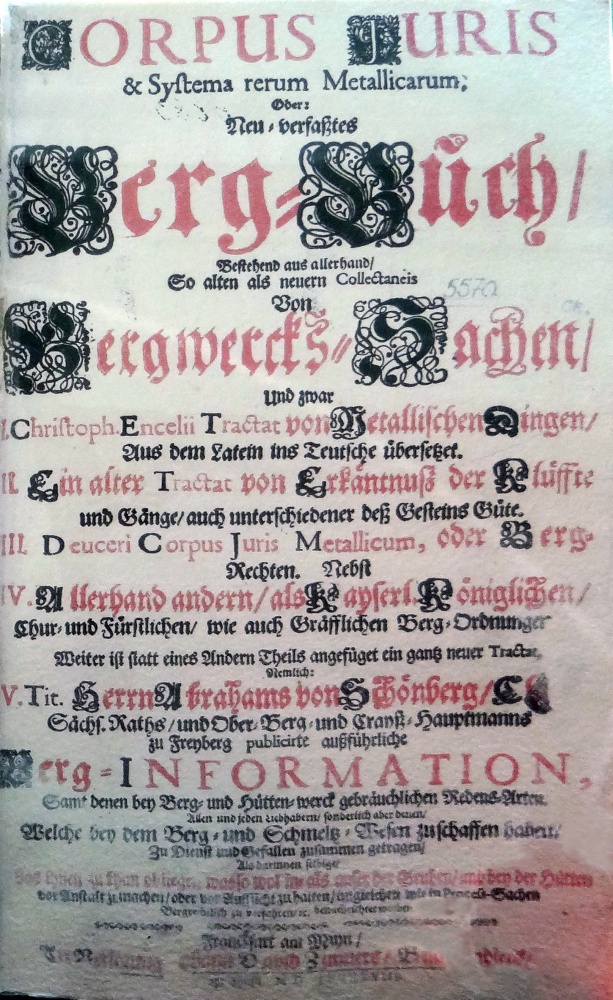 CORPUS JURIS
& Syſtema rerum Metallicarum;
Oder:
Neu-verfaßtes
Berg-Buch/
Beſtehend aus allerhand/
So alten als neuern Collectaneis
5570
Von
Bergwercks-Sachen/
Und zwar
I. Chriſtoph. Encelii Tractat von Metalliſchen Dingen/
Aus dem Latein ins Teutſche überſetzet.
II. Ein alter Tractat von Erkäntnuß der Klüffte
und Gänge/ auch unterſchiedener deß Geſteins Güte.
III. Deuceri Corpus Juris Metallicum, oder Berg-
Rechten. Nebſt
IV. Allerhand andern/ als Kayſerl. Königlichen/
Chur- und Fürſtlichen/ wie auch Gräfflichen Berg-Ordnungen
Weiter iſt ſtatt eines Andern Theils angefüget ein gantz neuer Tractat,
Nemlich:
V. Tit. Herrn Abrahams von Schönberg/
Sächſ. Raths/ und Ober-Berg- und Crayß-Hauptmanns
zu Freyberg publicirte außführliche
Berg-INFORMATION,
Samt denen bey Berg- und Hütten-werck gebräuchlichen Redens-Arten.
Allen und jeden Liebhabern/ ſonderlich aber denen/
Welche bey dem Berg- und Schmeltz-Weſen zuſchaffen haben/
Zu Dienſt und Gefallen zuſammen getragen/
der Hütten
vor Anſtalt zu machen/ oder vor Auffſicht zu halten/ ungleichen wie in Proceß-Sachen
Franckfurt am Mayn/